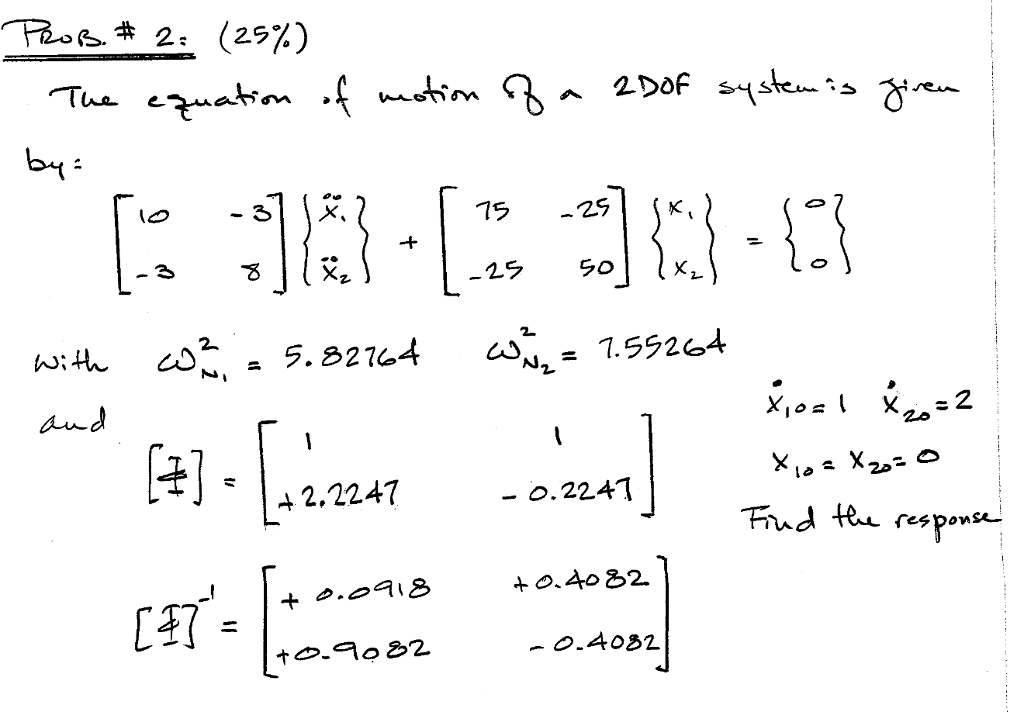 PROB. # 2: (25%)
The equation of motion of a 2DOF system is given
by:
[10 -3; -3 8] {ẍ₁; ẍ₂} + [75 -25; -25 50] {x₁; x₂} = {0; 0}
with ω²_N₁ = 5.82764 ω²_N₂ = 7.55264
and
[Φ] = [1 1; +2.2247 -0.2247]
ẋ₁₀=1 ẋ₂₀=2
x₁₀ = x₂₀=0
Find the response
[Φ]⁻¹ = [+0.0918 +0.4082; +0.9082 -0.4082]